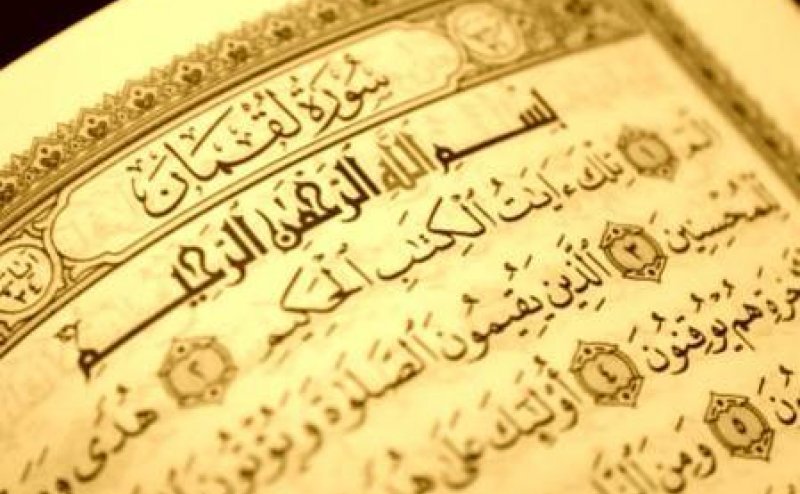 سُورَةُ لُقْمَانَ
آيَاتُهَا ٣٤
بِسْمِ اللَّهِ الرَّحْمَٰنِ الرَّحِيمِ
الٓمٓ ١ تِلْكَ ءَايَٰتُ ٱلْكِتَٰبِ ٱلْحَكِيمِ ٢ هُدًى
لِّلْمُحْسِنِينَ ٣ ٱلَّذِينَ يُقِيمُونَ ٱلصَّلَوٰةَ وَيُؤْتُونَ
هُمْ يُوقِنُونَ ٤ أُو۟لَٰٓئِكَ عَلَىٰ
٥ وَمِنَ